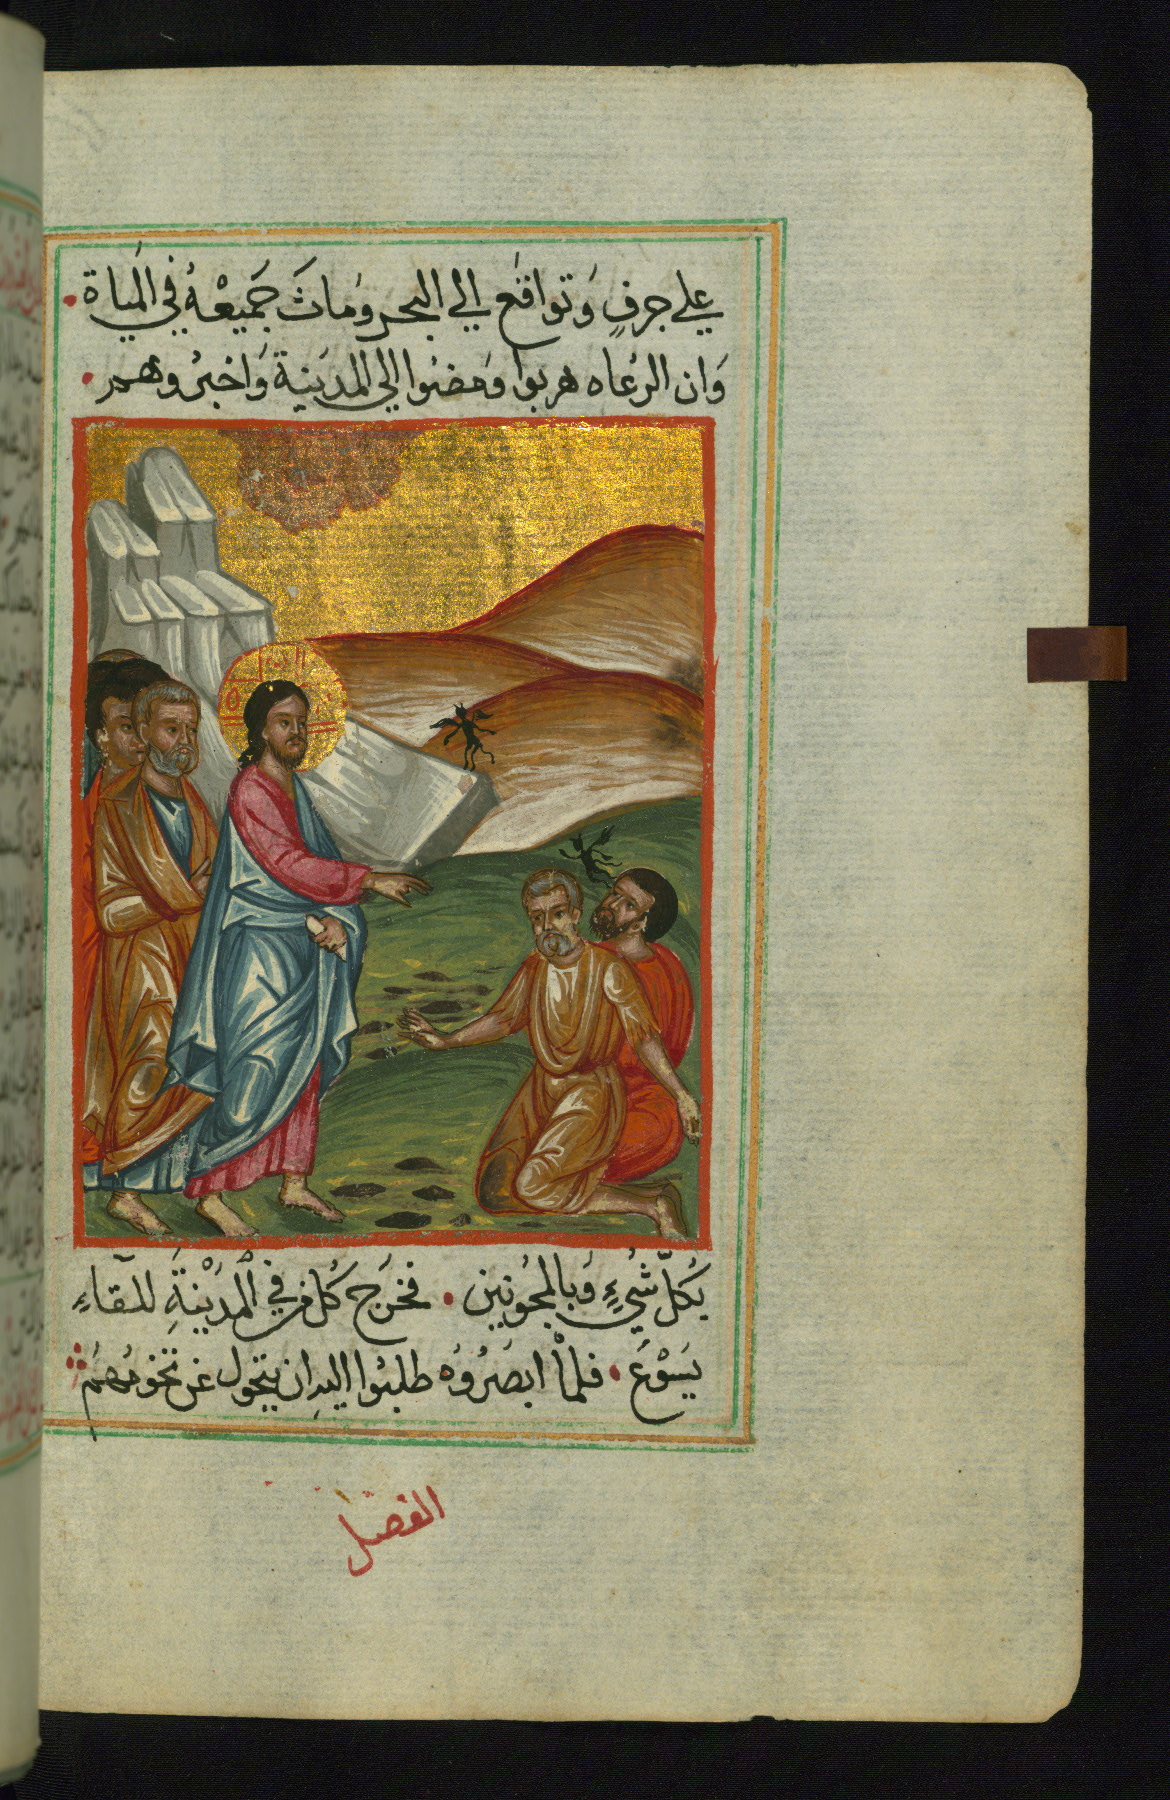 علي جرفٍ وَتواقَع الي البحر وَماتَ جَميعْهُ في المياة
وَان الرعَاه هربوا وَمضوا الي المدينة وَاخبرُوهم
بكُلّ شيُءٍ وَبالمجُونين فخرَج كُل مَن في الْمَدينْةَِ للقاءِ
يَسَوْعَ فلماْ ابصَرُوُه طلبُوا اليهِ ان يتحول عَن تخوُمهمَ
الفصل